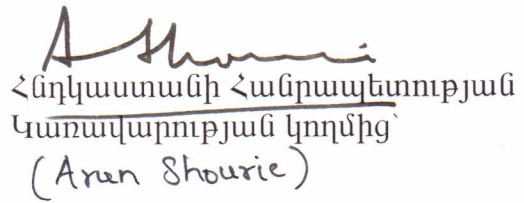 A Shourie
Հնդկաստանի Հանրապետության
Կառավարության կողմից՝
(Arun Shourie)